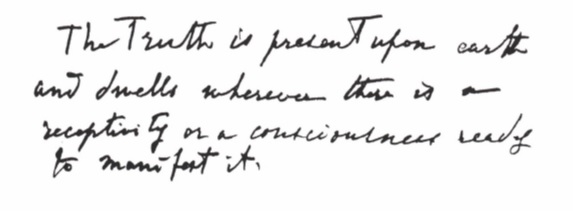 The Truth is present upon earth
and dwells wherever there is a
receptivity or a consciousness ready
to manifest it.